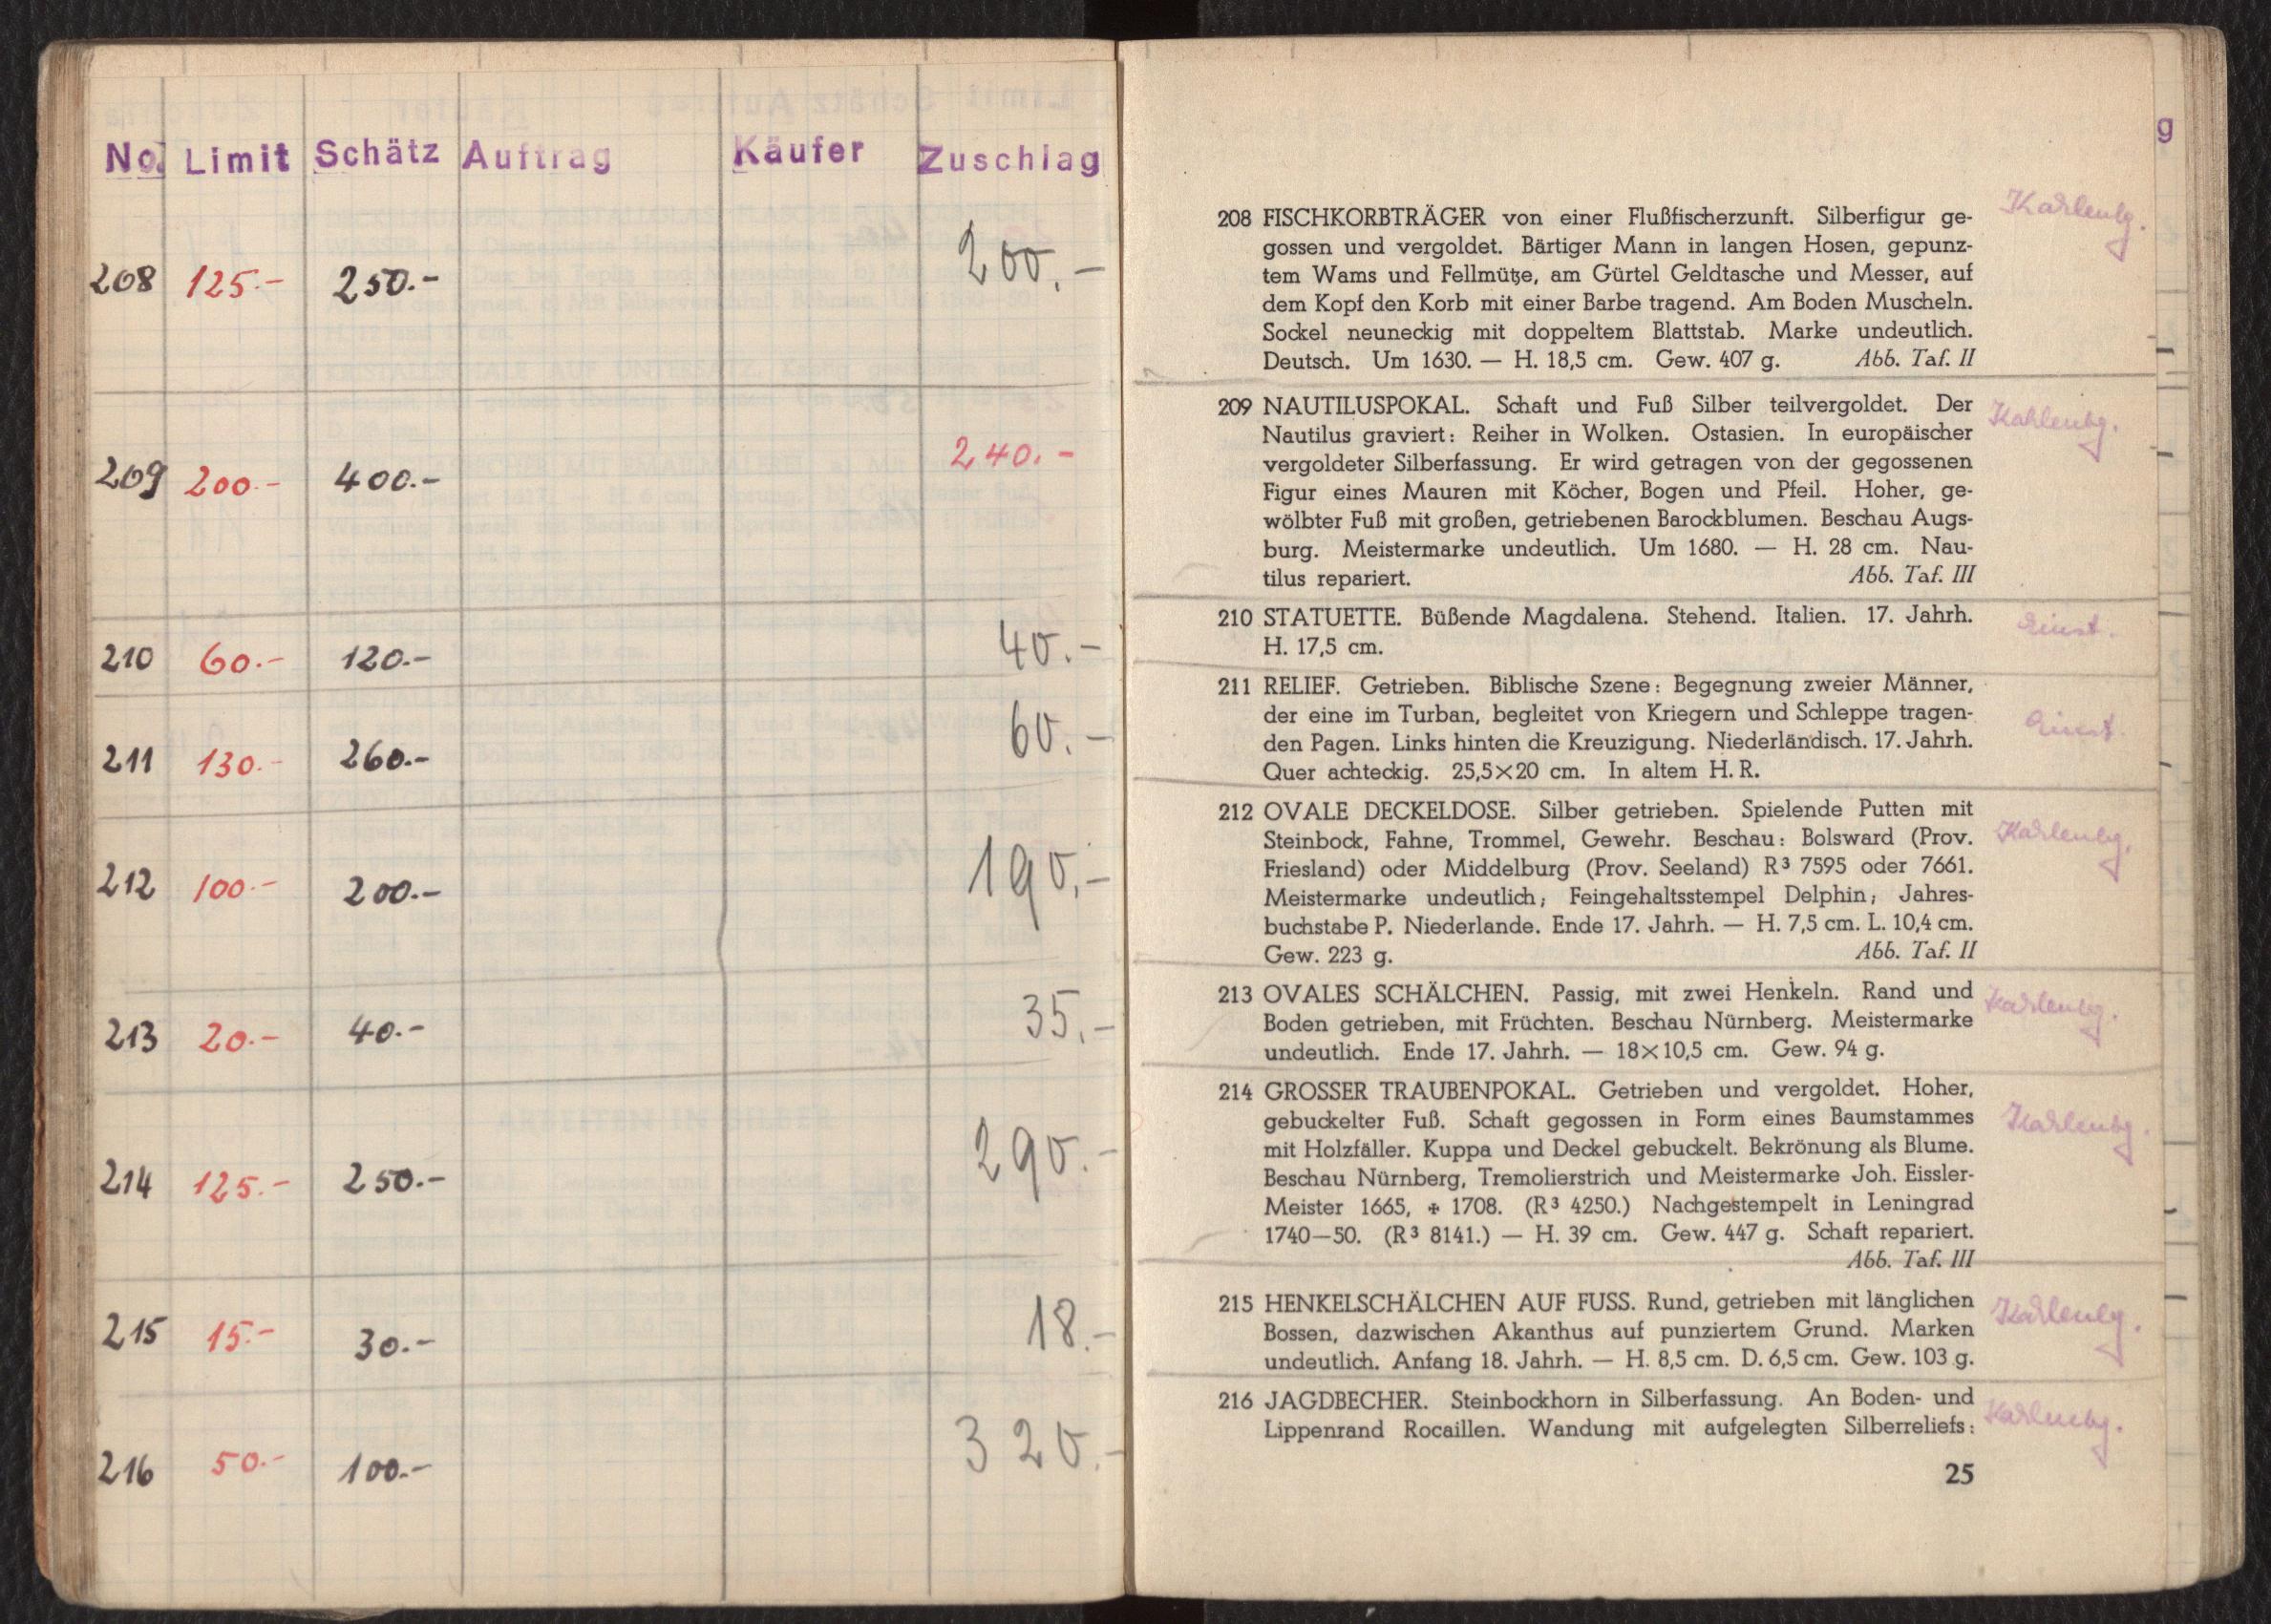 No. Limit Schätz Auftrag Käufer Zuschlag
208 125.- 250.- 200.-
209 200.- 400.- 240.-
210 60.- 120.- 40.-
211 130.- 260.- 60.-
212 100.- 200.- 190.-
213 20.- 40.- 35.-
214 125.- 250.- 290.-
215 15.- 30.- 18.-
216 50.- 100.- 320.-
g
208 FISCHKORBTRÄGER von einer Flußfischerzunft. Silberfigur ge-
gossen und vergoldet. Bärtiger Mann in langen Hosen, gepunz-
tem Wams und Fellmütze, am Gürtel Geldtasche und Messer, auf
dem Kopf den Korb mit einer Barbe tragend. Am Boden Muscheln.
Sockel neuneckig mit doppeltem Blattstab. Marke undeutlich.
Deutsch. Um 1630. — H. 18,5 cm. Gew. 407 g. Abb. Taf. II
209 NAUTILUSPOKAL. Schaft und Fuß Silber teilvergoldet. Der
Nautilus graviert: Reiher in Wolken. Ostasien. In europäischer
vergoldeter Silberfassung. Er wird getragen von der gegossenen
Figur eines Mauren mit Köcher, Bogen und Pfeil. Hoher, ge-
wölbter Fuß mit großen, getriebenen Barockblumen. Beschau Augs-
burg. Meistermarke undeutlich. Um 1680. — H. 28 cm. Nau-
tilus repariert. Abb. Taf. III
210 STATUETTE. Büßende Magdalena. Stehend. Italien. 17. Jahrh.
H. 17,5 cm.
211 RELIEF. Getrieben. Biblische Szene: Begegnung zweier Männer,
der eine im Turban, begleitet von Kriegern und Schleppe tragen-
den Pagen. Links hinten die Kreuzigung. Niederländisch. 17. Jahrh.
Quer achteckig. 25,5×20 cm. In altem H. R.
212 OVALE DECKELDOSE. Silber getrieben. Spielende Putten mit
Steinbock, Fahne, Trommel, Gewehr. Beschau: Bolsward (Prov.
Friesland) oder Middelburg (Prov. Seeland) R³ 7595 oder 7661.
Meistermarke undeutlich; Feingehaltsstempel Delphin; Jahres-
buchstabe P. Niederlande. Ende 17. Jahrh. — H. 7,5 cm. L. 10,4 cm.
Gew. 223 g. Abb. Taf. II
213 OVALES SCHÄLCHEN. Passig, mit zwei Henkeln. Rand und
Boden getrieben, mit Früchten. Beschau Nürnberg. Meistermarke
undeutlich. Ende 17. Jahrh. — 18×10,5 cm. Gew. 94 g.
214 GROSSER TRAUBENPOKAL. Getrieben und vergoldet. Hoher,
gebuckelter Fuß. Schaft gegossen in Form eines Baumstammes
mit Holzfäller. Kuppa und Deckel gebuckelt. Bekrönung als Blume.
Beschau Nürnberg, Tremolierstrich und Meistermarke Joh. Eissler-
Meister 1665, ✠ 1708. (R³ 4250.) Nachgestempelt in Leningrad
1740—50. (R³ 8141.) — H. 39 cm. Gew. 447 g. Schaft repariert.
Abb. Taf. III
215 HENKELSCHÄLCHEN AUF FUSS. Rund, getrieben mit länglichen
Bossen, dazwischen Akanthus auf punziertem Grund. Marken
undeutlich. Anfang 18. Jahrh. — H. 8,5 cm. D. 6,5 cm. Gew. 103 g.
216 JAGDBECHER. Steinbockhorn in Silberfassung. An Boden- und
Lippenrand Rocaillen. Wandung mit aufgelegten Silberreliefs:
25